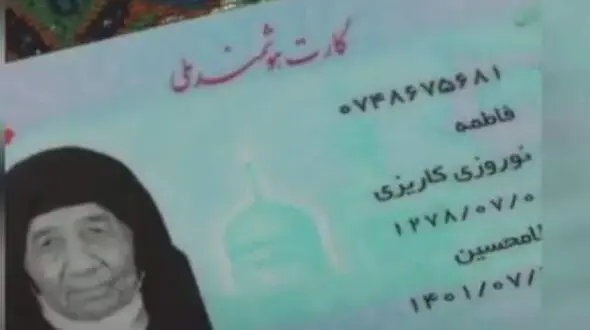 کارت هوشمند ملی
۰۷۴۸۶۷۵۶۸۱
فاطمه
نوروزی کاریزی
۱۲۷۸/۰۷/۰
لامحسین
۱۴۰۱/۰۷/